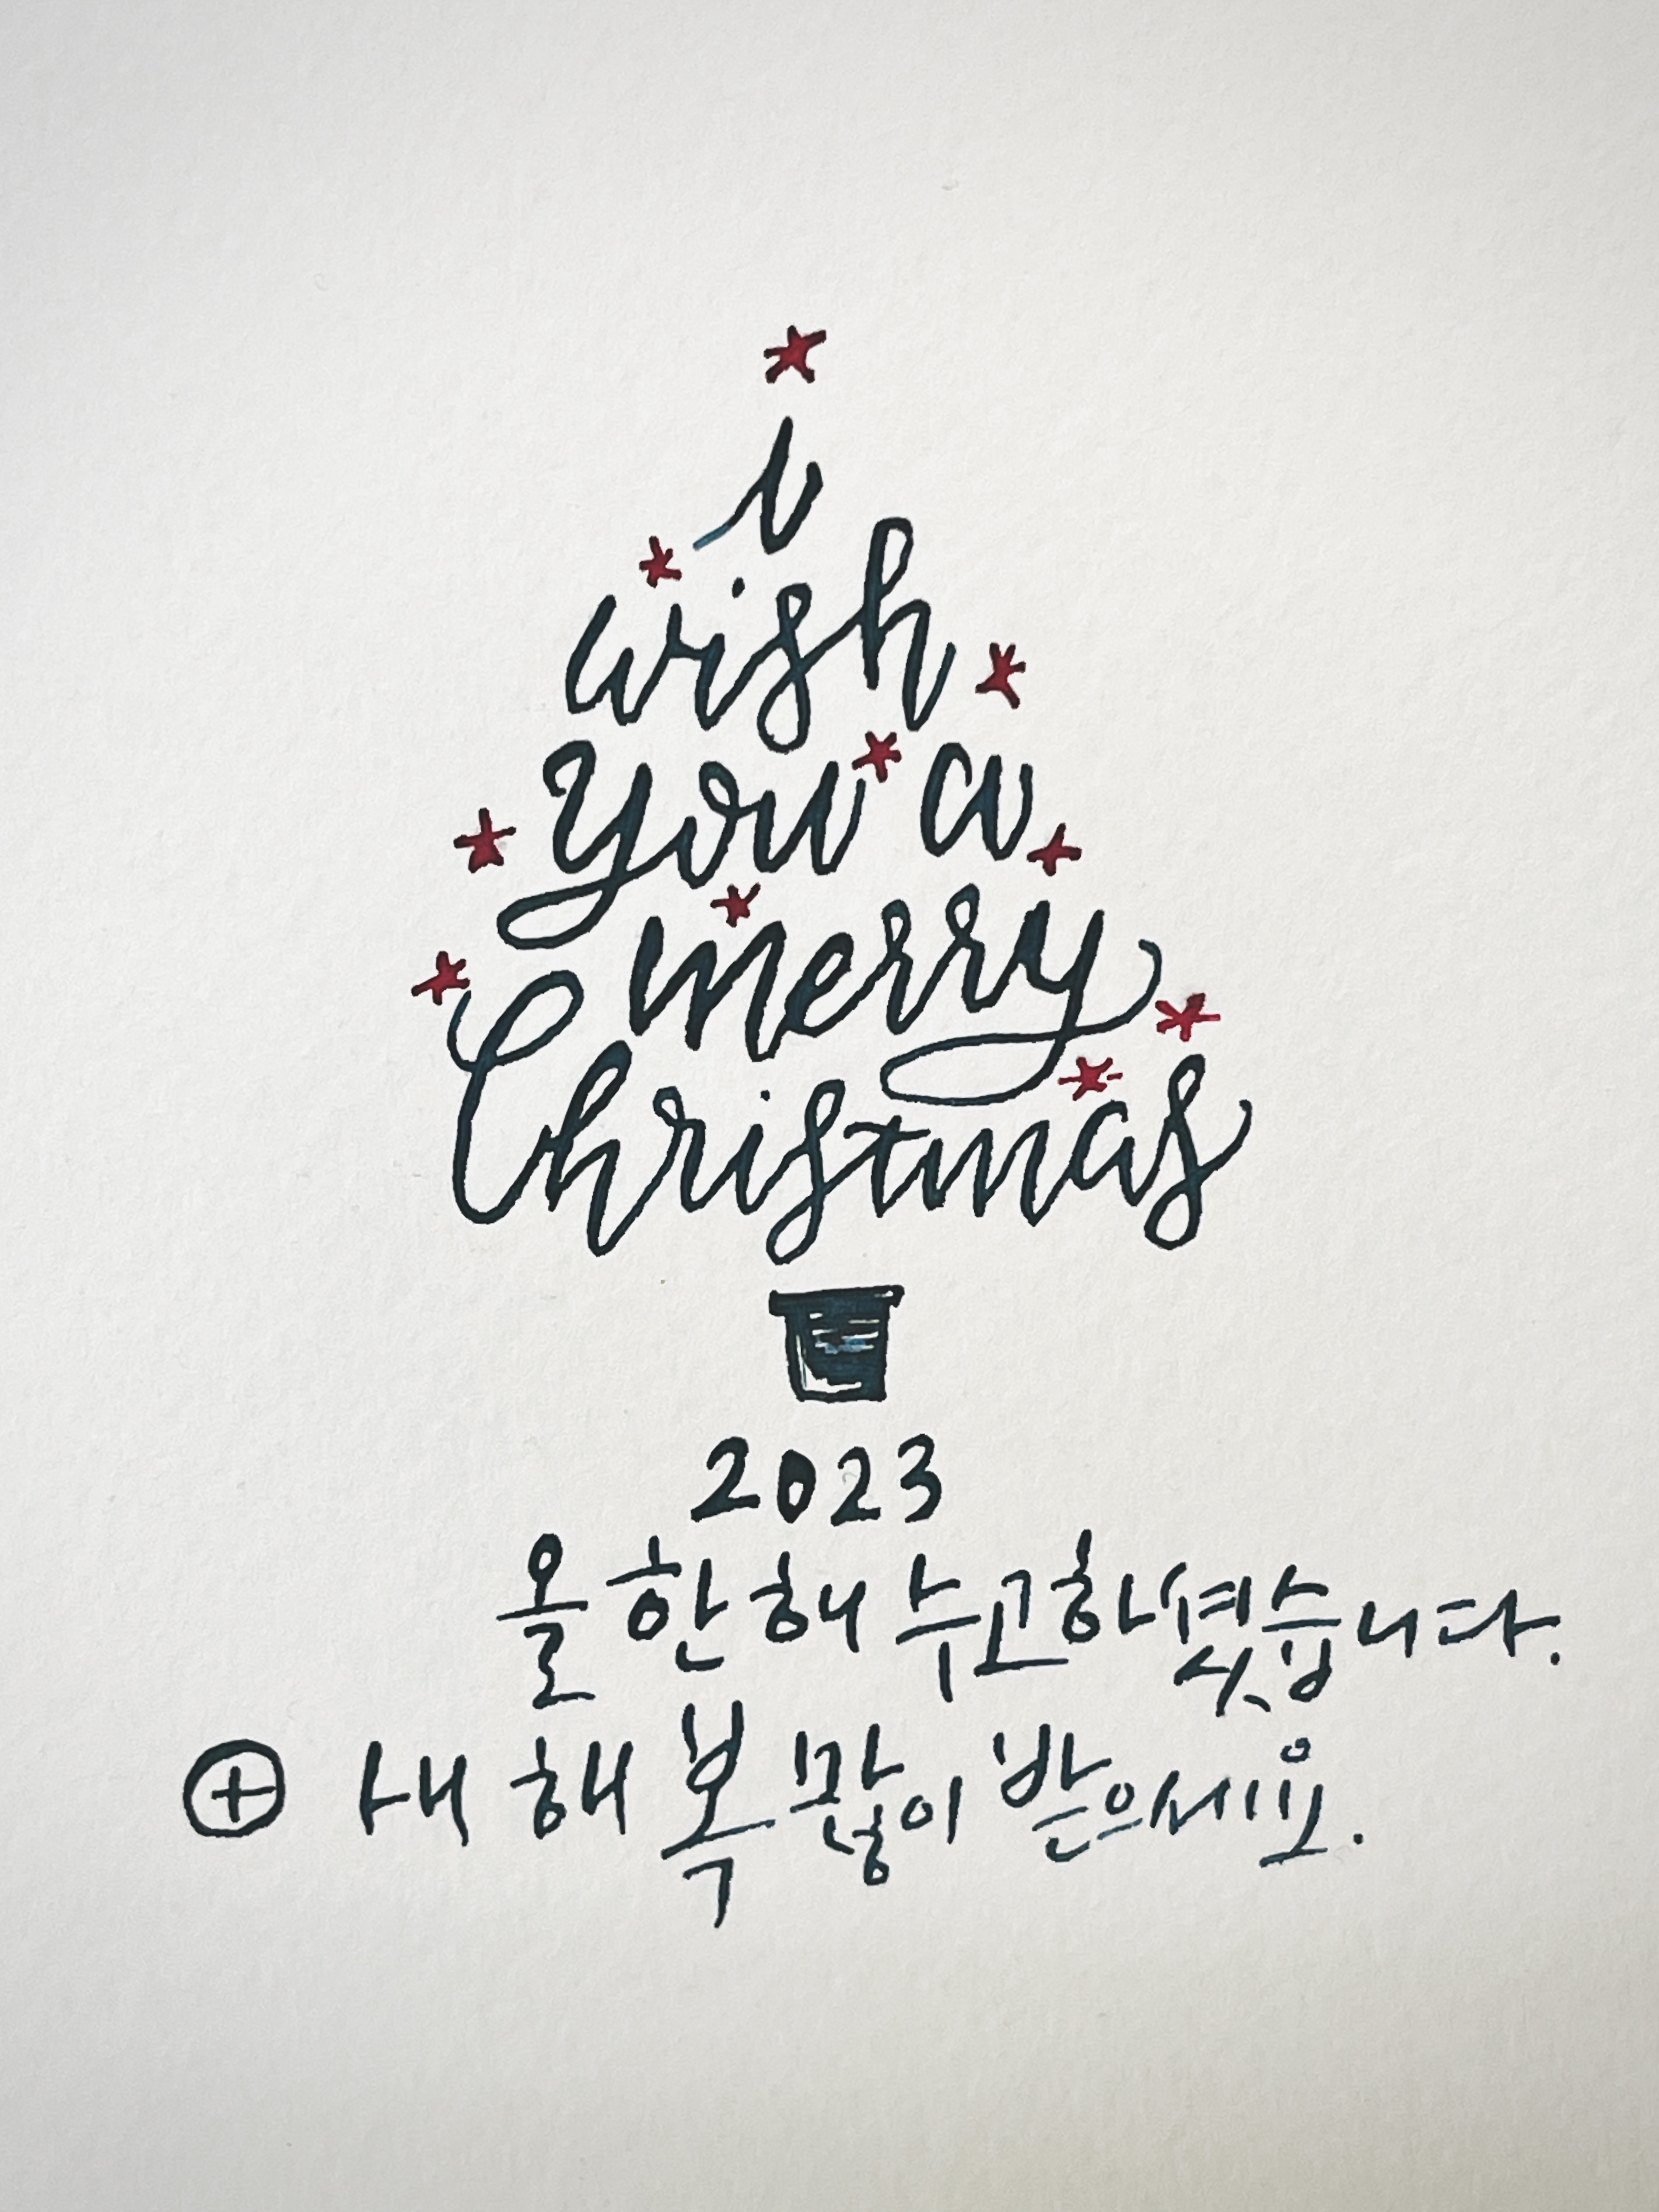 i
wish
you a
merry
Christmas
2023
올 한해 수고하셨습니다.
⊕ 새해 복 많이 받으세요.